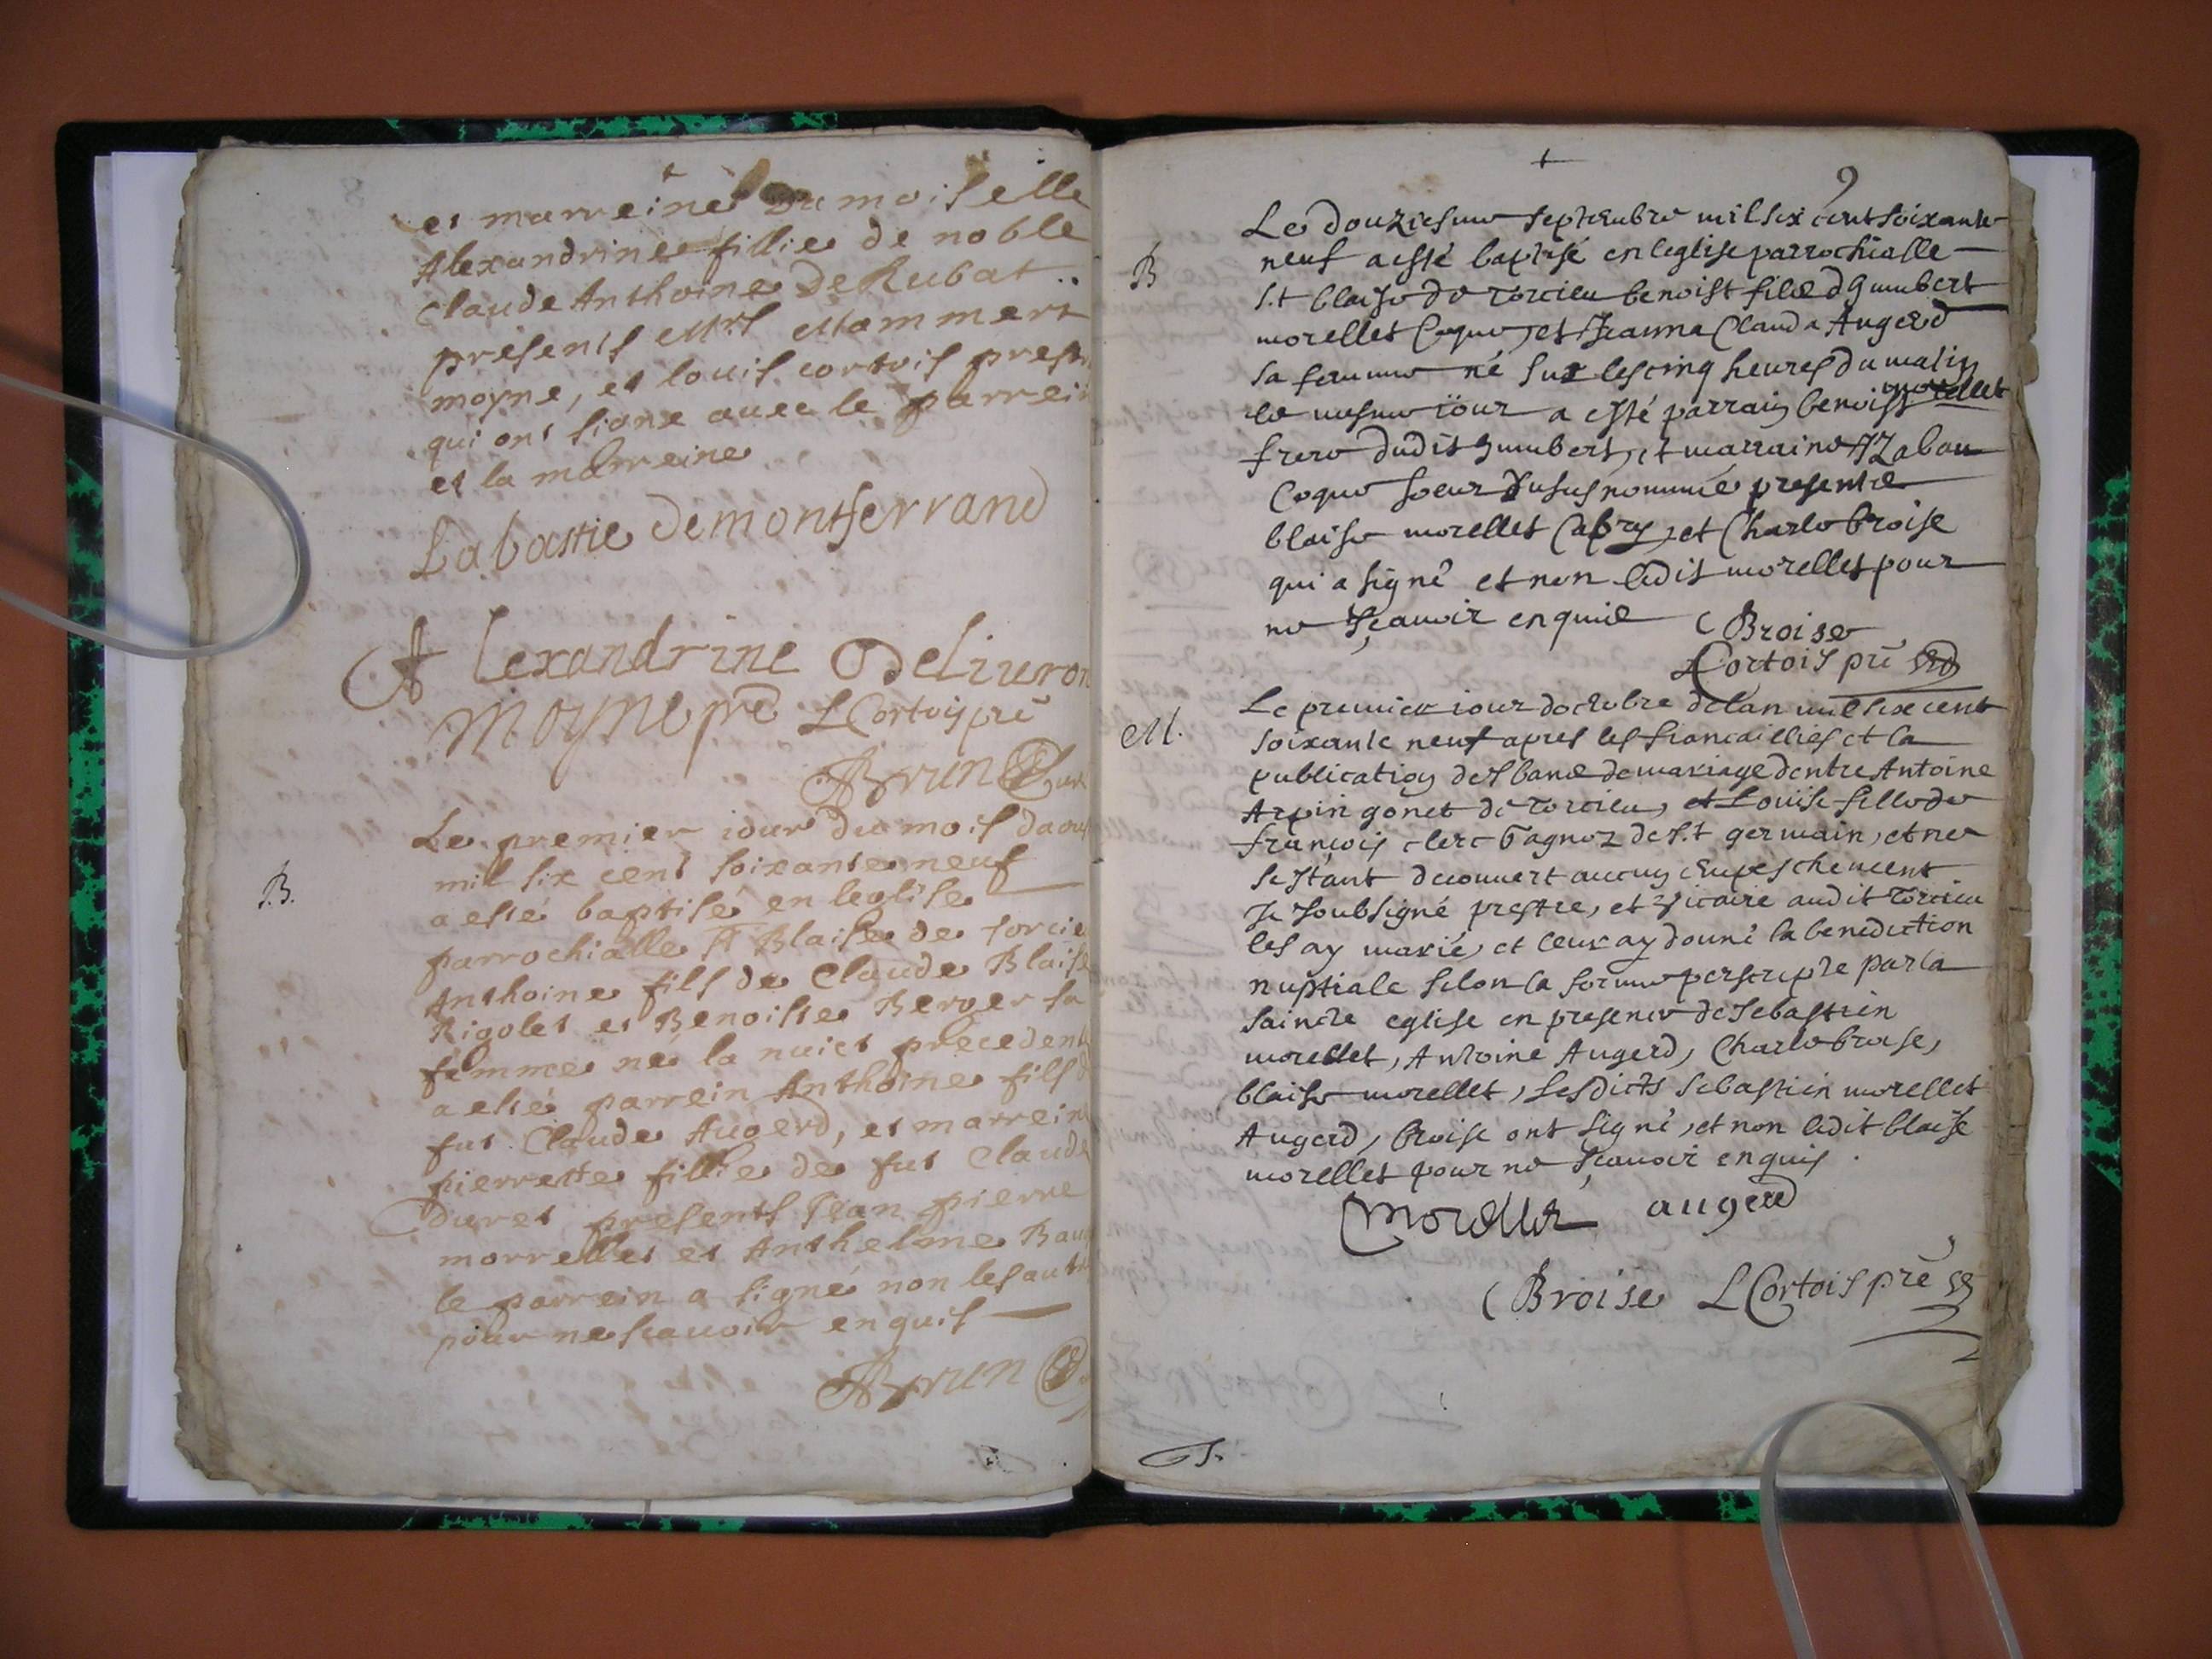 et marreine damoiselle
Alexandrine fillie de noble
Claude Anthoine De Rubat
présents Mrs Mammert
moyne, et louis cortois prest
qui ont signe avec le parrein
et la marreine
Labastie demontferrand
Alexandrine Deliuron
Moyne pre LCortois pre
Brun
Le premier iour du mois daou
B.
mil six cent soixante neuf
a esté baptisé en leglise
parrochialle St Blaise de torcie
Anthoine fils de Claude Blaise
Rigolet et Benoiste Berger sa
femme né la nuict precedent
a esté parrein Anthoine fils d
fut Claude Augerd, et marrein
pierrette fillie de fut Claude
Duret presents Jean pierre
morrellet et Anthelme Bau
le parrein a signé non les autr
pour ne scauoir enquis
Brun
9
Le douziesme septembre mil six cent soixante
B
neuf a esté baptisé en leglise parrochialle
S.t blaise de torcieu benoist fils d humbert
morellet Coque, et Jeanna Clauda Augerd
sa femme né sur les cinq heures du matin
le mesme iour a esté parrain benoist morellet
frere dudit humbert, et marraine Yzabau
Coque soeur susus nommé presents
blaise morellet Cabry, et Charle broise
qui a signé et non ledit morellet pour
ne sçauoir enquis Broise
LCortois pre
Le premier iour doctobre de lan mil six cent
M.
soixante neuf apres les fiancaillies et la
publication des bans de mariage dentre Antoine
Arpin gonet de torcieu, et Louise fille de
françois clerc Gagnoz de S.t germain, et ne
sestant decouuert aucun empeschement
Je soubsigné prestre, et vicaire audit torcieu
les ay marié, et leur ay donné la benediction
nuptiale selon la forme perscripte par la
saincte eglise en presence de Sebastien
morellet, Antoine Augerd, Charle broise,
blaise morellet, Lesdicts Sebastien morellet
Augerd, broise ont signé, et non ledit blaise
morellet pour ne sçauoir enquis.
Morellet augerd
Broise LCortois pre